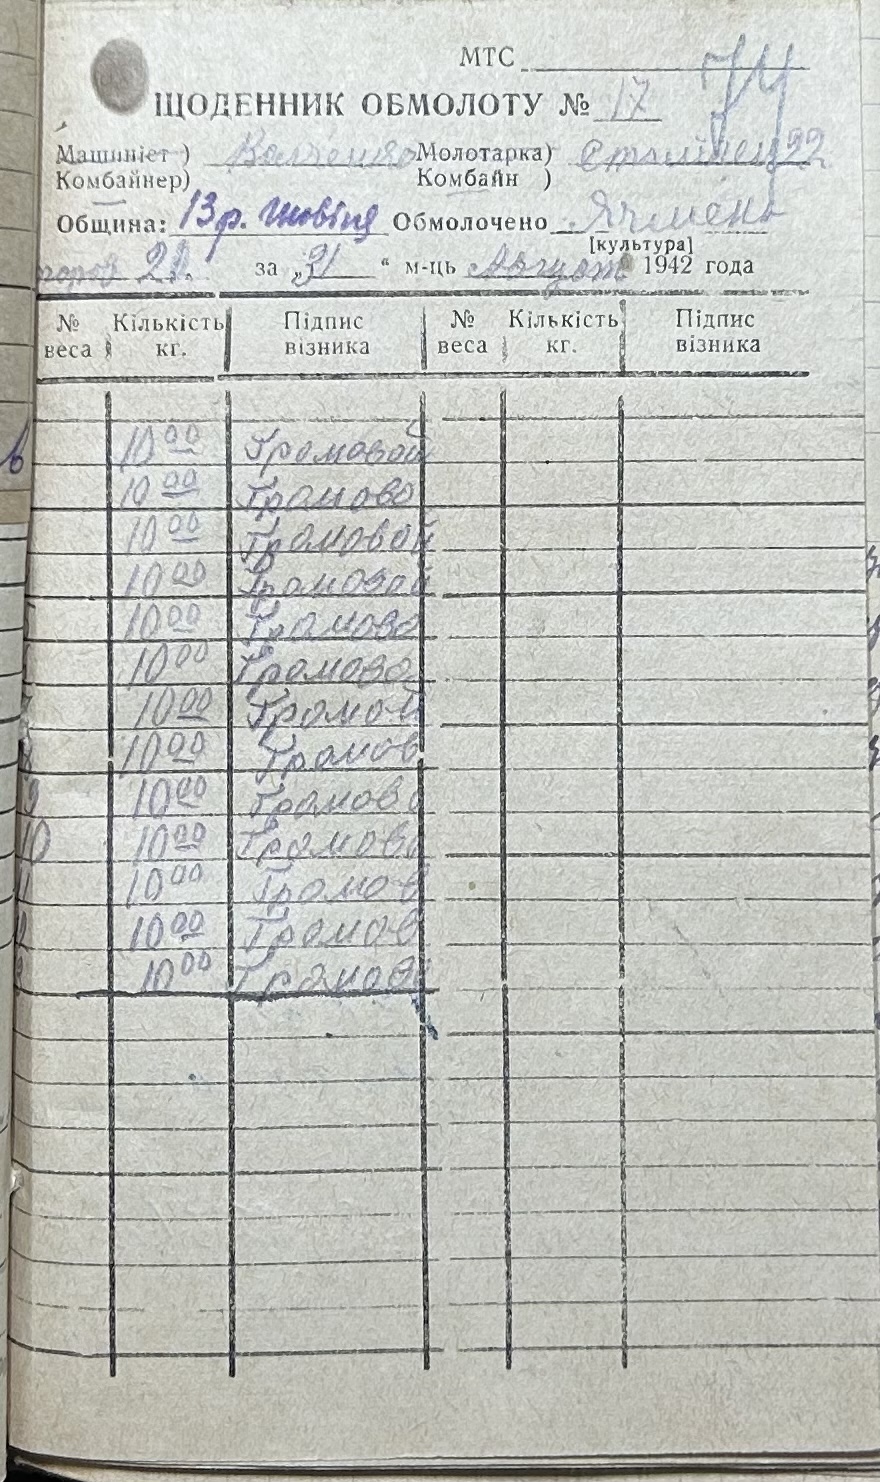 МТС
ЩОДЕННИК ОБМОЛОТУ № 17
Машиніст ) Молотарка)
Комбайнер) Комбайн )
Община: 13 р. Обмолочено Ячмень
[культура]
за „31“ м-ць Август 1942 года
№ веса Кількість кг. Підпис візника № веса Кількість кг. Підпис візника
10 00 Громовой
10 00 Громово
10 00 Громовой
10 00 Громовой
10 00 Громово
10 00 Громово
7 10 00 Громов
8 10 00 Громов
9 10 00 Громово
10 10 00 Громово
10 00 Громов
10 00 Громов
10 00 Громово